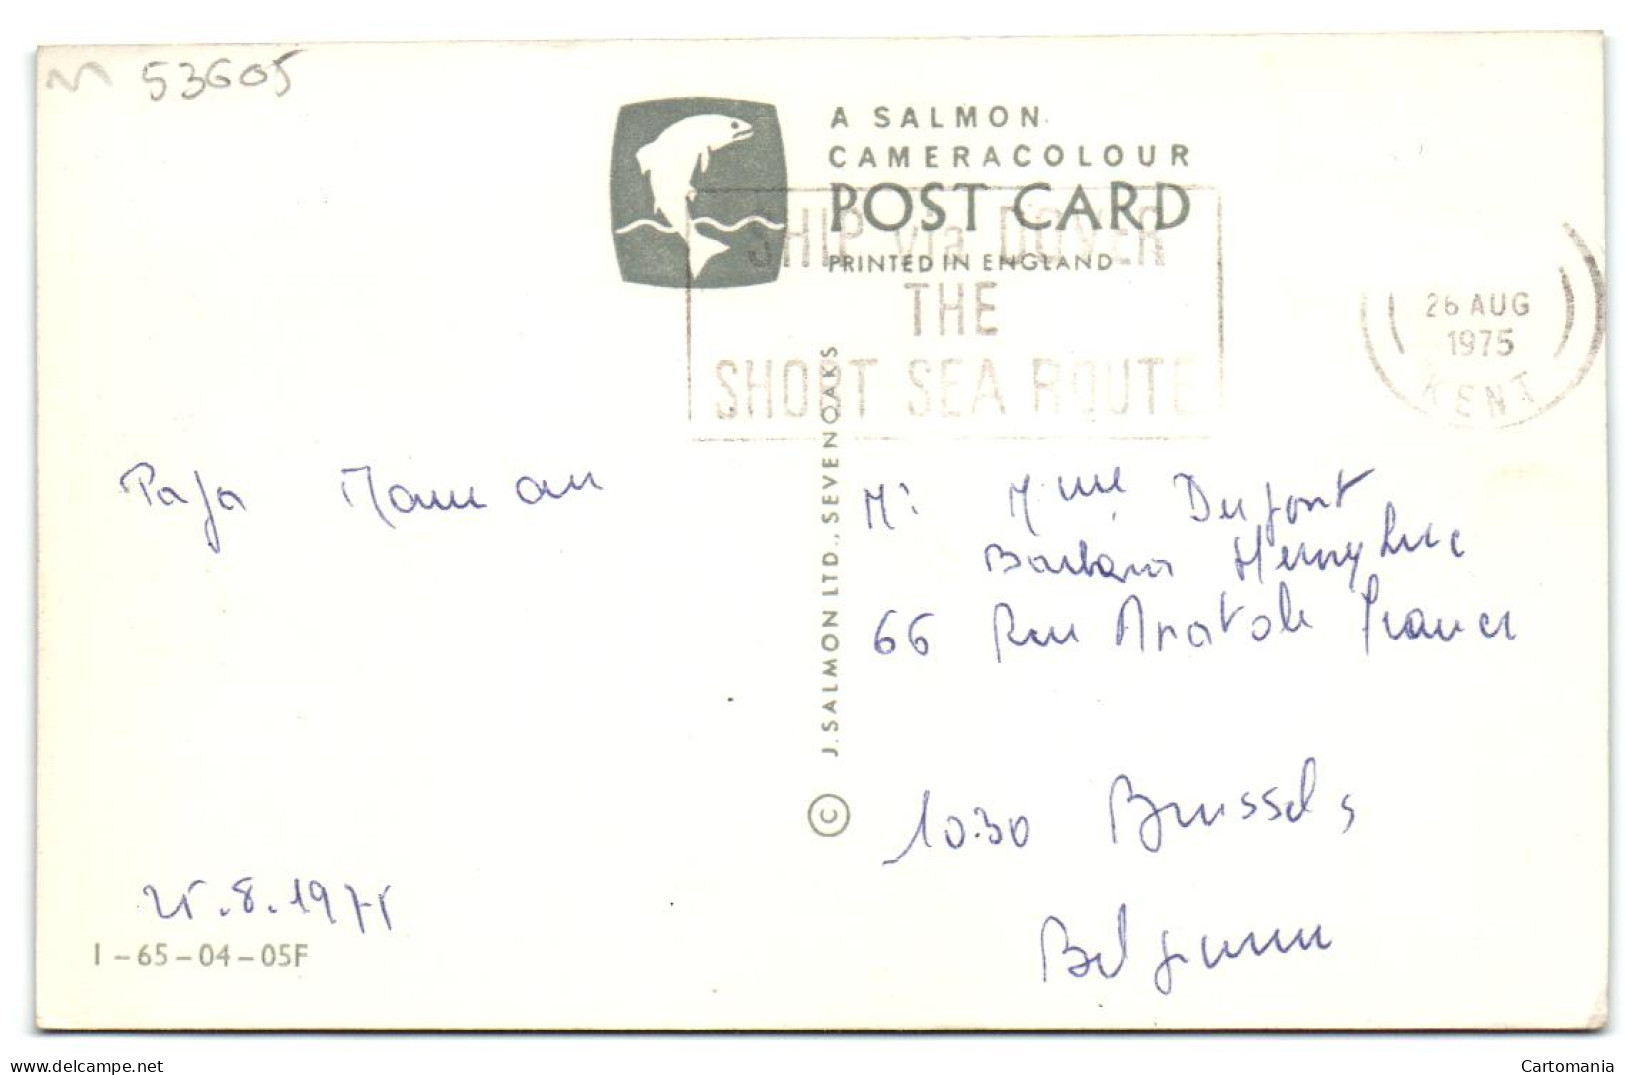 53605
A SALMON
CAMERACOLOUR
POST CARD
PRINTED IN ENGLAND
SHIP via DOVER
THE
SHORT SEA ROUTE
26 AUG
1975
KENT
Papa Maman
25.8.1975
I-65-04-05F
© J. SALMON LTD., SEVENOAKS
Mr Mme Dupont
Barbara Henry Luc
66 Rue Anatole France
1030 Brussels
Belgium
delcampe.net
Cartomania